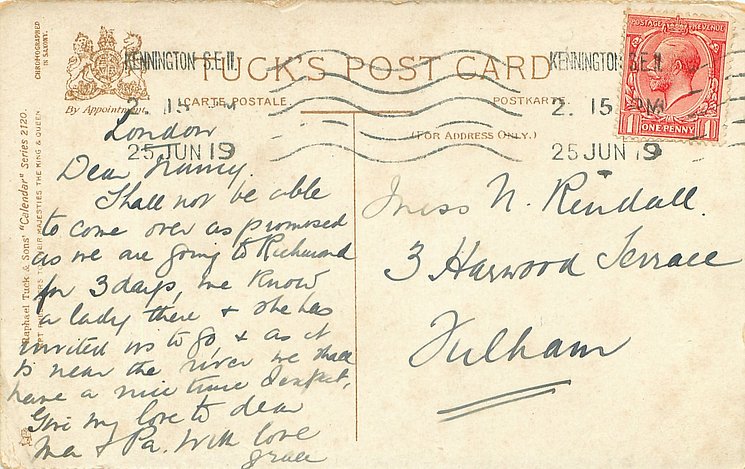 CHROMOGRAPHED
IN SAXONY.
KENNINGTON S.E.11.
2. 15 PM
25 JUN 19
TUCK'S POST CARD
By Appointment.
CARTE POSTALE.
POSTKARTE.
(FOR ADDRESS ONLY.)
KENNINGTON S.E.11
2. 15 PM
25 JUN 19
POSTAGE REVENUE
1 ONE PENNY 1
Raphael Tuck & Sons' "Calendar" Series 2120.
ART PUBLISHERS TO THEIR MAJESTIES THE KING & QUEEN
London
Dear Nancy.
Shall not be able
to come over as promised
as we are going to Richmond
for 3 days, we know
a lady there & she has
invited us to go & as it
is near the river we shall
have a nice time I expect.
Give my love to dear
Ma & Pa. With love
Grace
Miss N. Rendall.
3 Harwood Terrace
Fulham